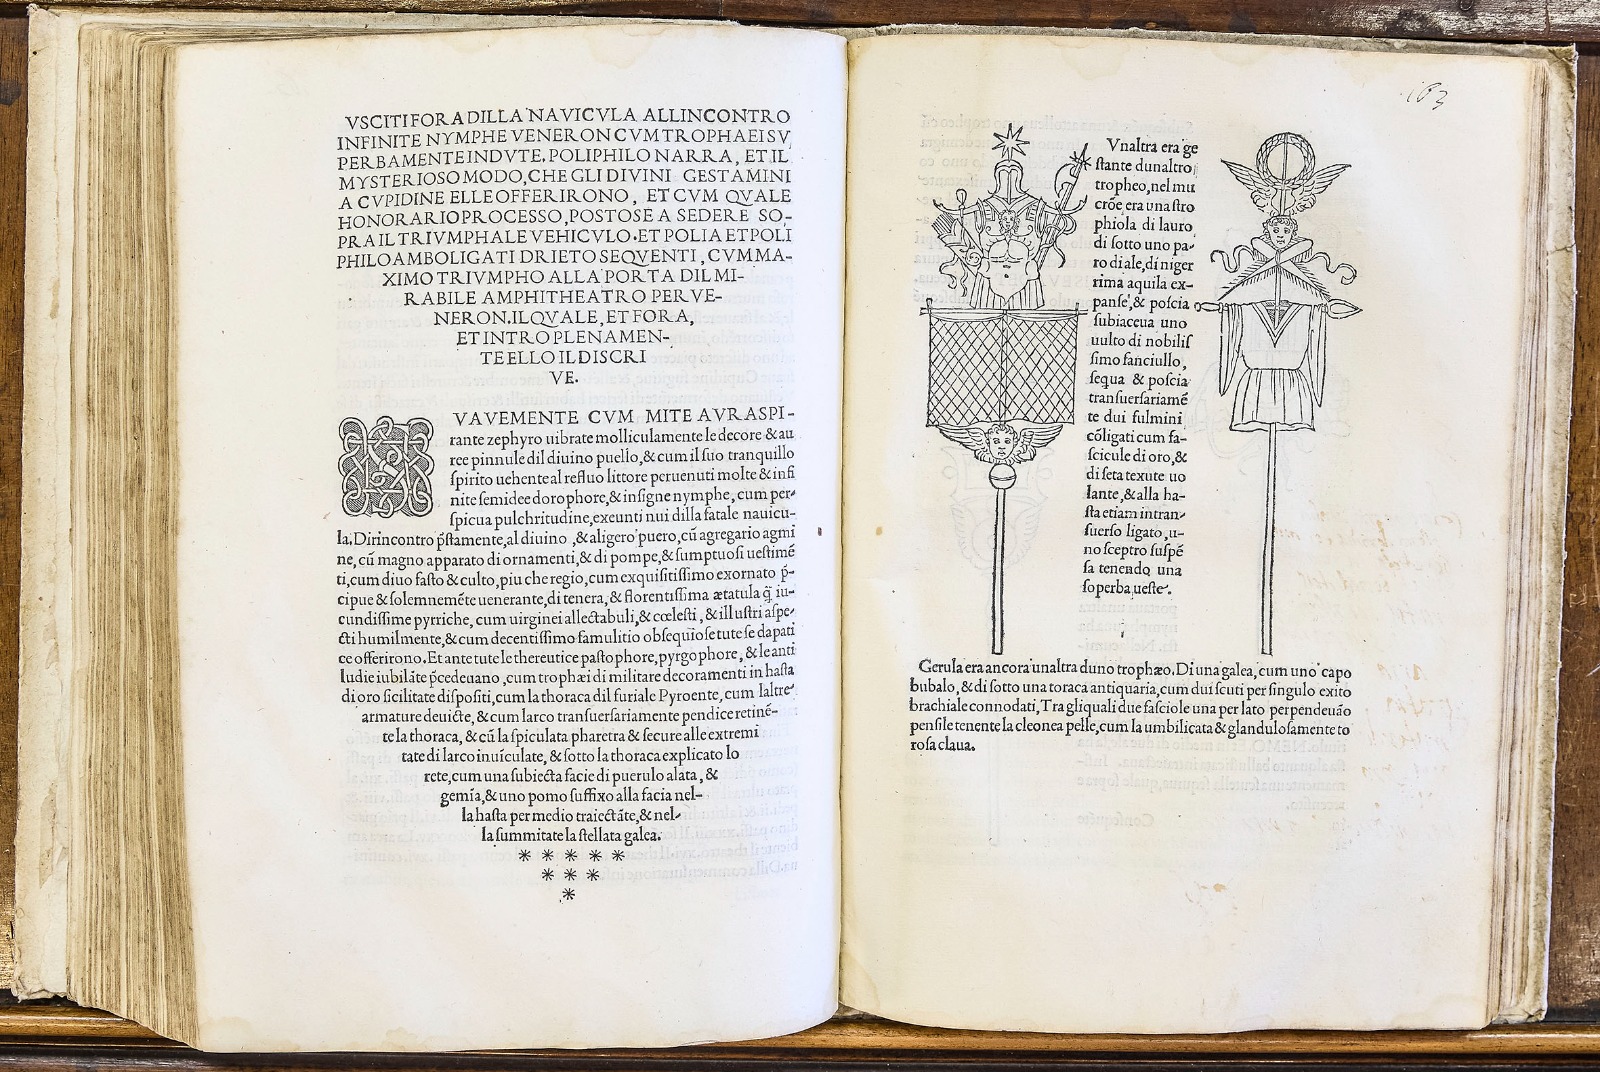 VSCITI FORA DILLA NAVICVLA ALLINCONTRO
INFINITE NYMPHE VENERON CVM TROPHAEI SV
PERBAMENTE INDVTE. POLIPHILO NARRA, ET IL
MYSTERIOSO MODO, CHE GLI DIVINI GESTAMINI
A CVPIDINE ELLE OFFERIRONO, ET CVM QVALE
HONORARIO PROCESSO, POSTOSE A SEDERE SO-
PRA IL TRIVMPHALE VEHICVLO. ET POLIA ET POLI
PHILO AMBO LIGATI DRIETO SEQVENTI, CVM MA-
XIMO TRIVMPHO ALLA PORTA DIL MI-
RABILE AMPHITHEATRO PERVE-
NERON. IL QVALE, ET FORA,
ET INTRO PLENAMEN-
TE ELLO IL DISCRI
VE.
VAVEMENTE CVM MITE AVRA SPI-
rante zephyro uibrate molliculamente le decore & au
ree pinnule dil diuino puello, & cum il suo tranquillo
spirito uehente al refluo littore peruenuti molte & infi
nite semidee dorophore, & insigne nymphe, cum per-
spicua pulchritudine, exeunti nui dilla fatale nauicu-
la. Dirincontro p̃stamente, al diuino, & aligero puero, cũ agregario agmi
ne, cũ magno apparato di ornamenti, & di pompe, & sumptuosi uestimẽ
ti, cum diuo fasto & culto, piu che regio, cum exquisitissimo exornato p̃-
cipue & solemnemẽte uenerante, di tenera, & florentissima ætatula q̃ iu-
cundissime pyrriche, cum uirginei allectabuli, & cœlesti, & illustri aspe-
cti humilmente, & cum decentissimo famulitio obsequiose tute se dapati
ce offerirono. Et ante tute le thereutice pastophore, pyrgophore, & le anti
ludie iubilãte p̃cedeuano, cum trophæi di militare decoramenti in hasta
di oro sicilitate dispositi, cum la thoraca dil furiale Pyroente, cum laltre
armature deuicte, & cum larco transuersariamente pendice retinẽ-
te la thoraca, & cũ la spiculata pharetra & secure alle extremi
tate di larco inuiculate, & sotto la thoraca explicato lo
rete, cum una subiecta facie di puerulo alata, &
gemĩa, & uno pomo suffixo alla facia nel-
la hasta per medio traiectãte, & nel-
la summitate la stellata galea.
* * * * *
* * *
*
163
Vnaltra era ge
stante dunaltro
tropheo, nel mu
crõe era una stro
phiola di lauro
di sotto uno pa-
ro di ale, di niger
rima aquila ex-
panse, & poscia
subiaceua uno
uulto di nobilis
simo fanciullo,
sequa & poscia
transuersariamẽ
te dui fulmini
cõligati cum fa-
scicule di oro, &
di seta texute uo
lante, & alla ha-
sta etiam intran-
suerso ligato, u-
no sceptro suspẽ
sa tenendo una
soperba ueste.
Gerula era ancora unaltra duno trophæo. Di una galea, cum uno capo
bubalo, & di sotto una toraca antiquaria, cum dui scuti per singulo exito
brachiale connodati, Tra gli quali due fasciole una per lato perpendeuão
pensile tenente la cleonea pelle, cum la umbilicata & glandulosamente to
rosa claua.